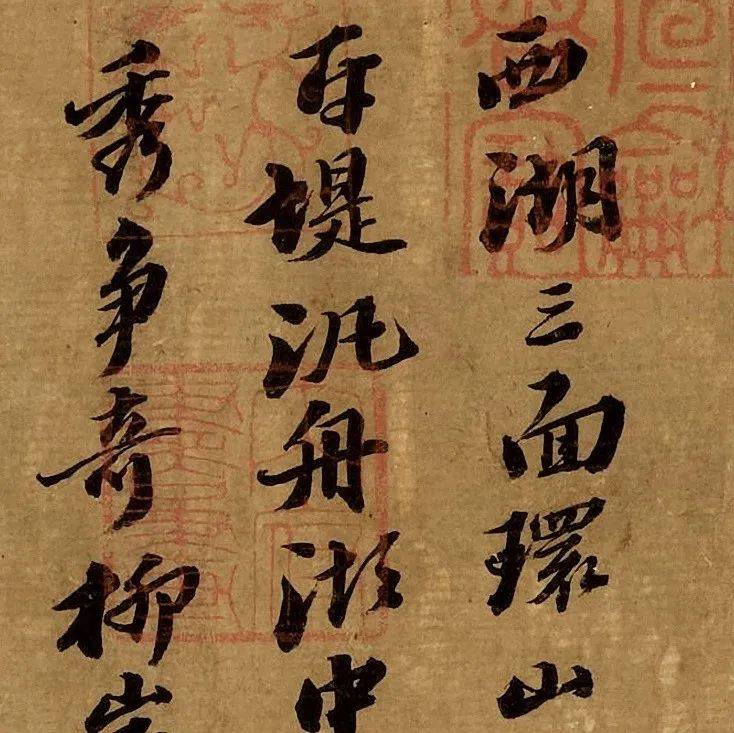 西湖三面環山
有堤汎舟湖中
秀爭奇柳岸